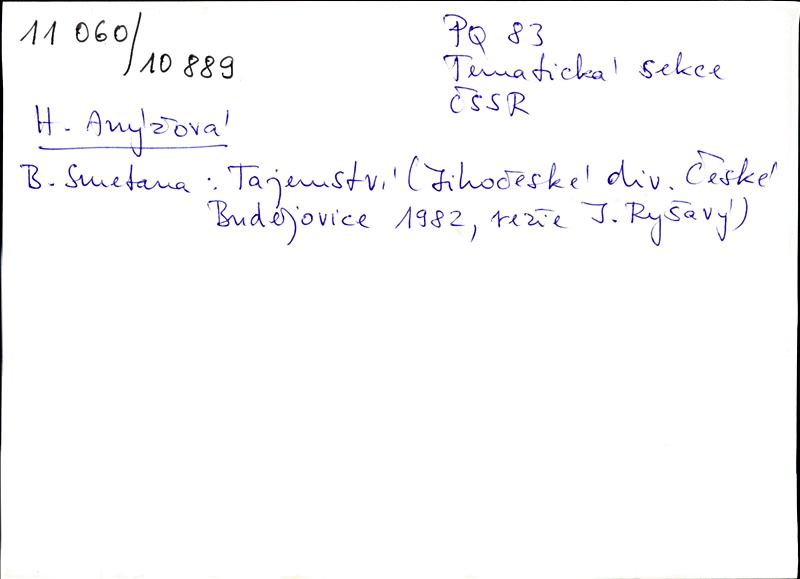 11 060/10 889
PQ 83
Tématická sekce
ČSSR
H. Anýžová
B. Smetana : Tajemství (Jihočeské div. České
Budějovice 1982, režie J. Ryšavý)